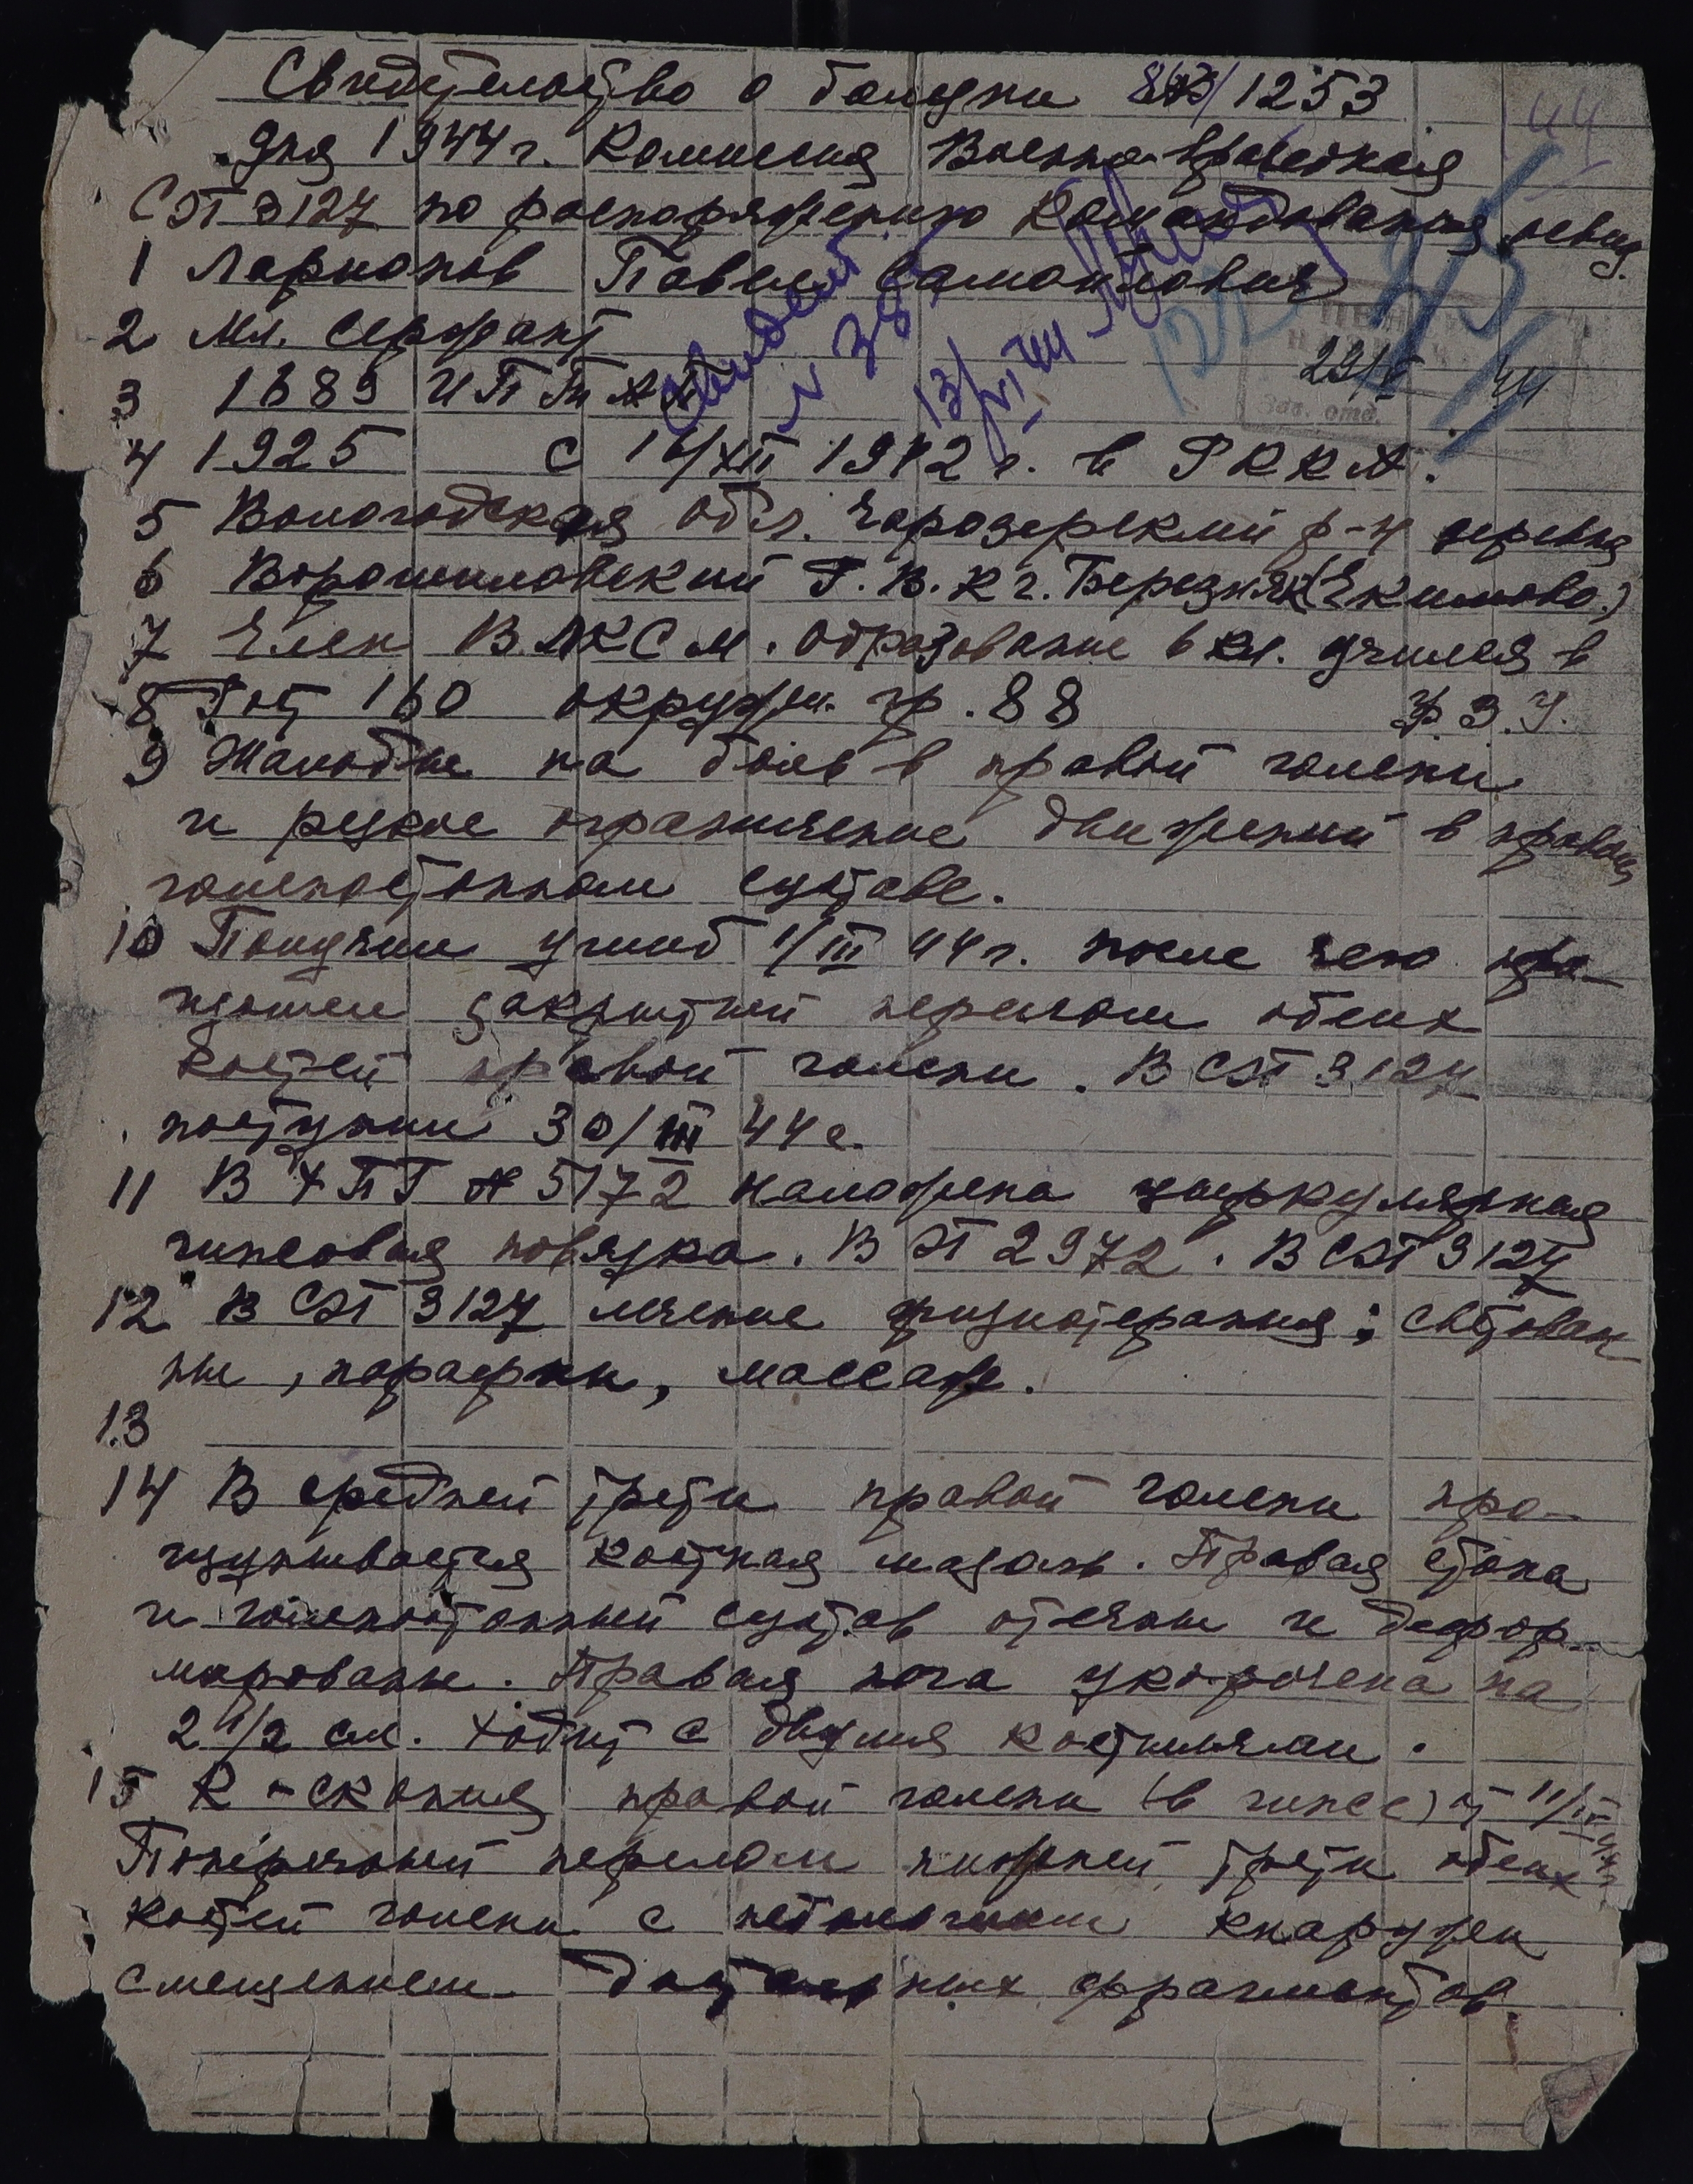 Свидетельство о болезни 1253
44
дня 1944 г. Комиссия Военно-врачебная
СЭГ 3127 по распоряжению Командования освид.
1 Ларионов Павел Самойлович
2 Мл. Сержант
3 1689 ИПТАП
N 38
13/VI 44
122
29/V 44
Зав. отд.
4 1925 с 16/XII 1942 г. в РККА.
5 Вологодская обл. Чарозерский р-н деревня
6 Ворошиловский Г.В.К г. Березняк (Екимово.)
7 Член ВЛКСМ. Образование 6 кл. учился в
8 Рост 160 окружн. гр. 88 Ф.З.У.
9 Жалобы на боль в правой голени
и резкое ограничение движений в правом
голеностопном суставе.
10 Получил ушиб 1/III 44 г. после чего про-
изошел закрытый перелом обеих
костей правой голени. В СЭГ 3127
поступил 30/III 44 г.
11 В ХППГ № 5172 наложена циркулярная
гипсовая повязка. В ЭГ 2972. В СЭГ 3127
12 В СЭГ 3127 лечение физиотерапия; светован
ны, парафин, массаж.
13
14 В средней трети правой голени про-
щупывается костная мозоль. Правая стопа
и голеностопный сустав отечны и дефор-
мированы. Правая нога укорочена на
2 1/2 см. Ходит с двумя костылями.
15 R-скопия правой голени (в гипсе) от 11/
Поперечный перелом нижней трети обеих
костей голени с небольшим кнаружи
смещением дистальных фрагментов